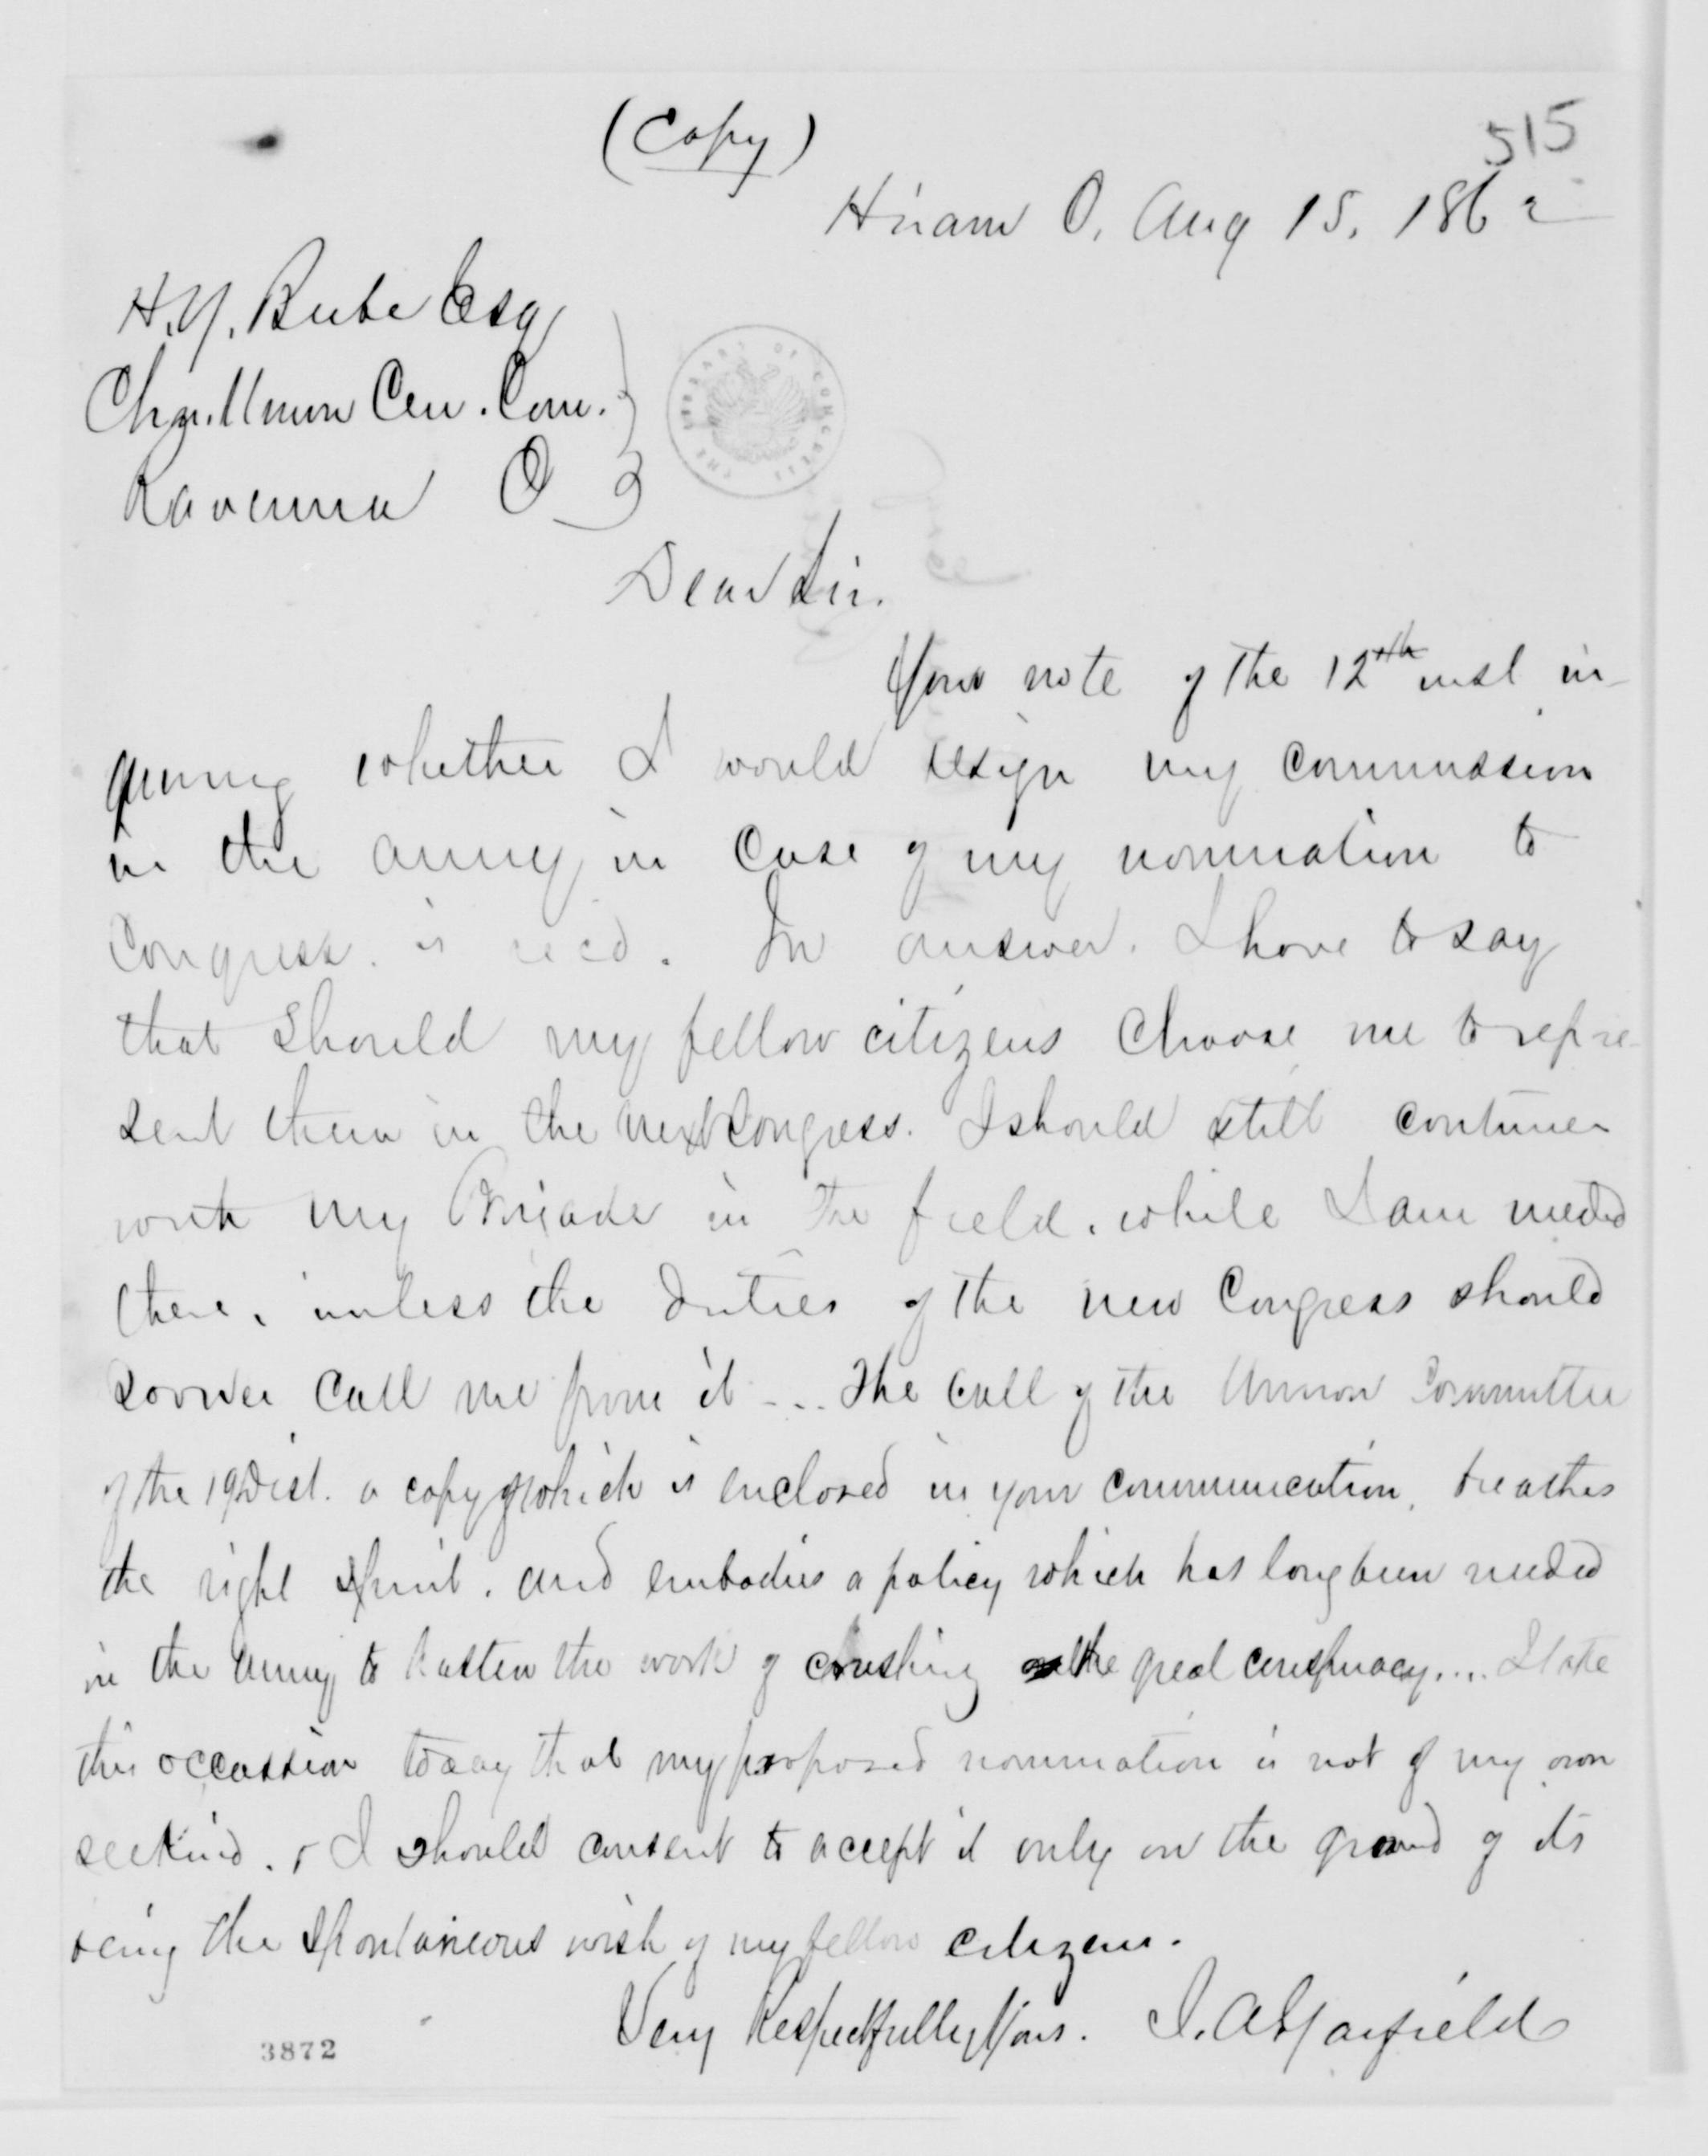 (Copy)
515
Hiram O. Aug 15. 1862
H. Y. Beebe Esq
Chr. Union Cen. Com.
Ravenna O
Dear Sir.
Your note of the 12th inst in-
quiring whether I would resign my commission
in the army in case of my nomination to
Congress. is recd. In answer. I have to say
that should my fellow citizens choose me to repre-
sent them in the next Congress. I should still continue
with my Brigade in the field. while I am needed
there. unless the duties of the new Congress should
sooner call me from it - .. The call of the Union Committee
of the 19 Dist. a copy of which is enclosed in your communication, breathes
the right spirit. and embodies a policy which has long been needed
in the army to hasten the work of crushing the great conspiracy.... I take
this occassion to say that my proposed nomination is not of my own
seeking. & I should consent to accept it only on the ground of its
being the spontaneous wish of my fellow citizens.
Very Respectfully Yours. J. A. Garfield
3872
THE LIBRARY OF CONGRESS